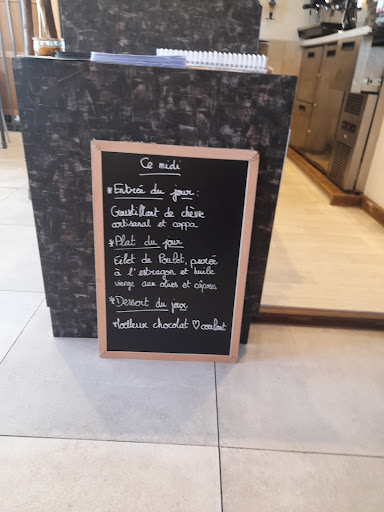 Ce midi
*Entrée du jour :
Croustillant de chèvre
artisanal et coppa
*Plat du jour
Filet de Poulet, purée
à l'estragon et huile
vierge aux olives et câpres
*Dessert du jour
Moelleux chocolat ♡ coulant